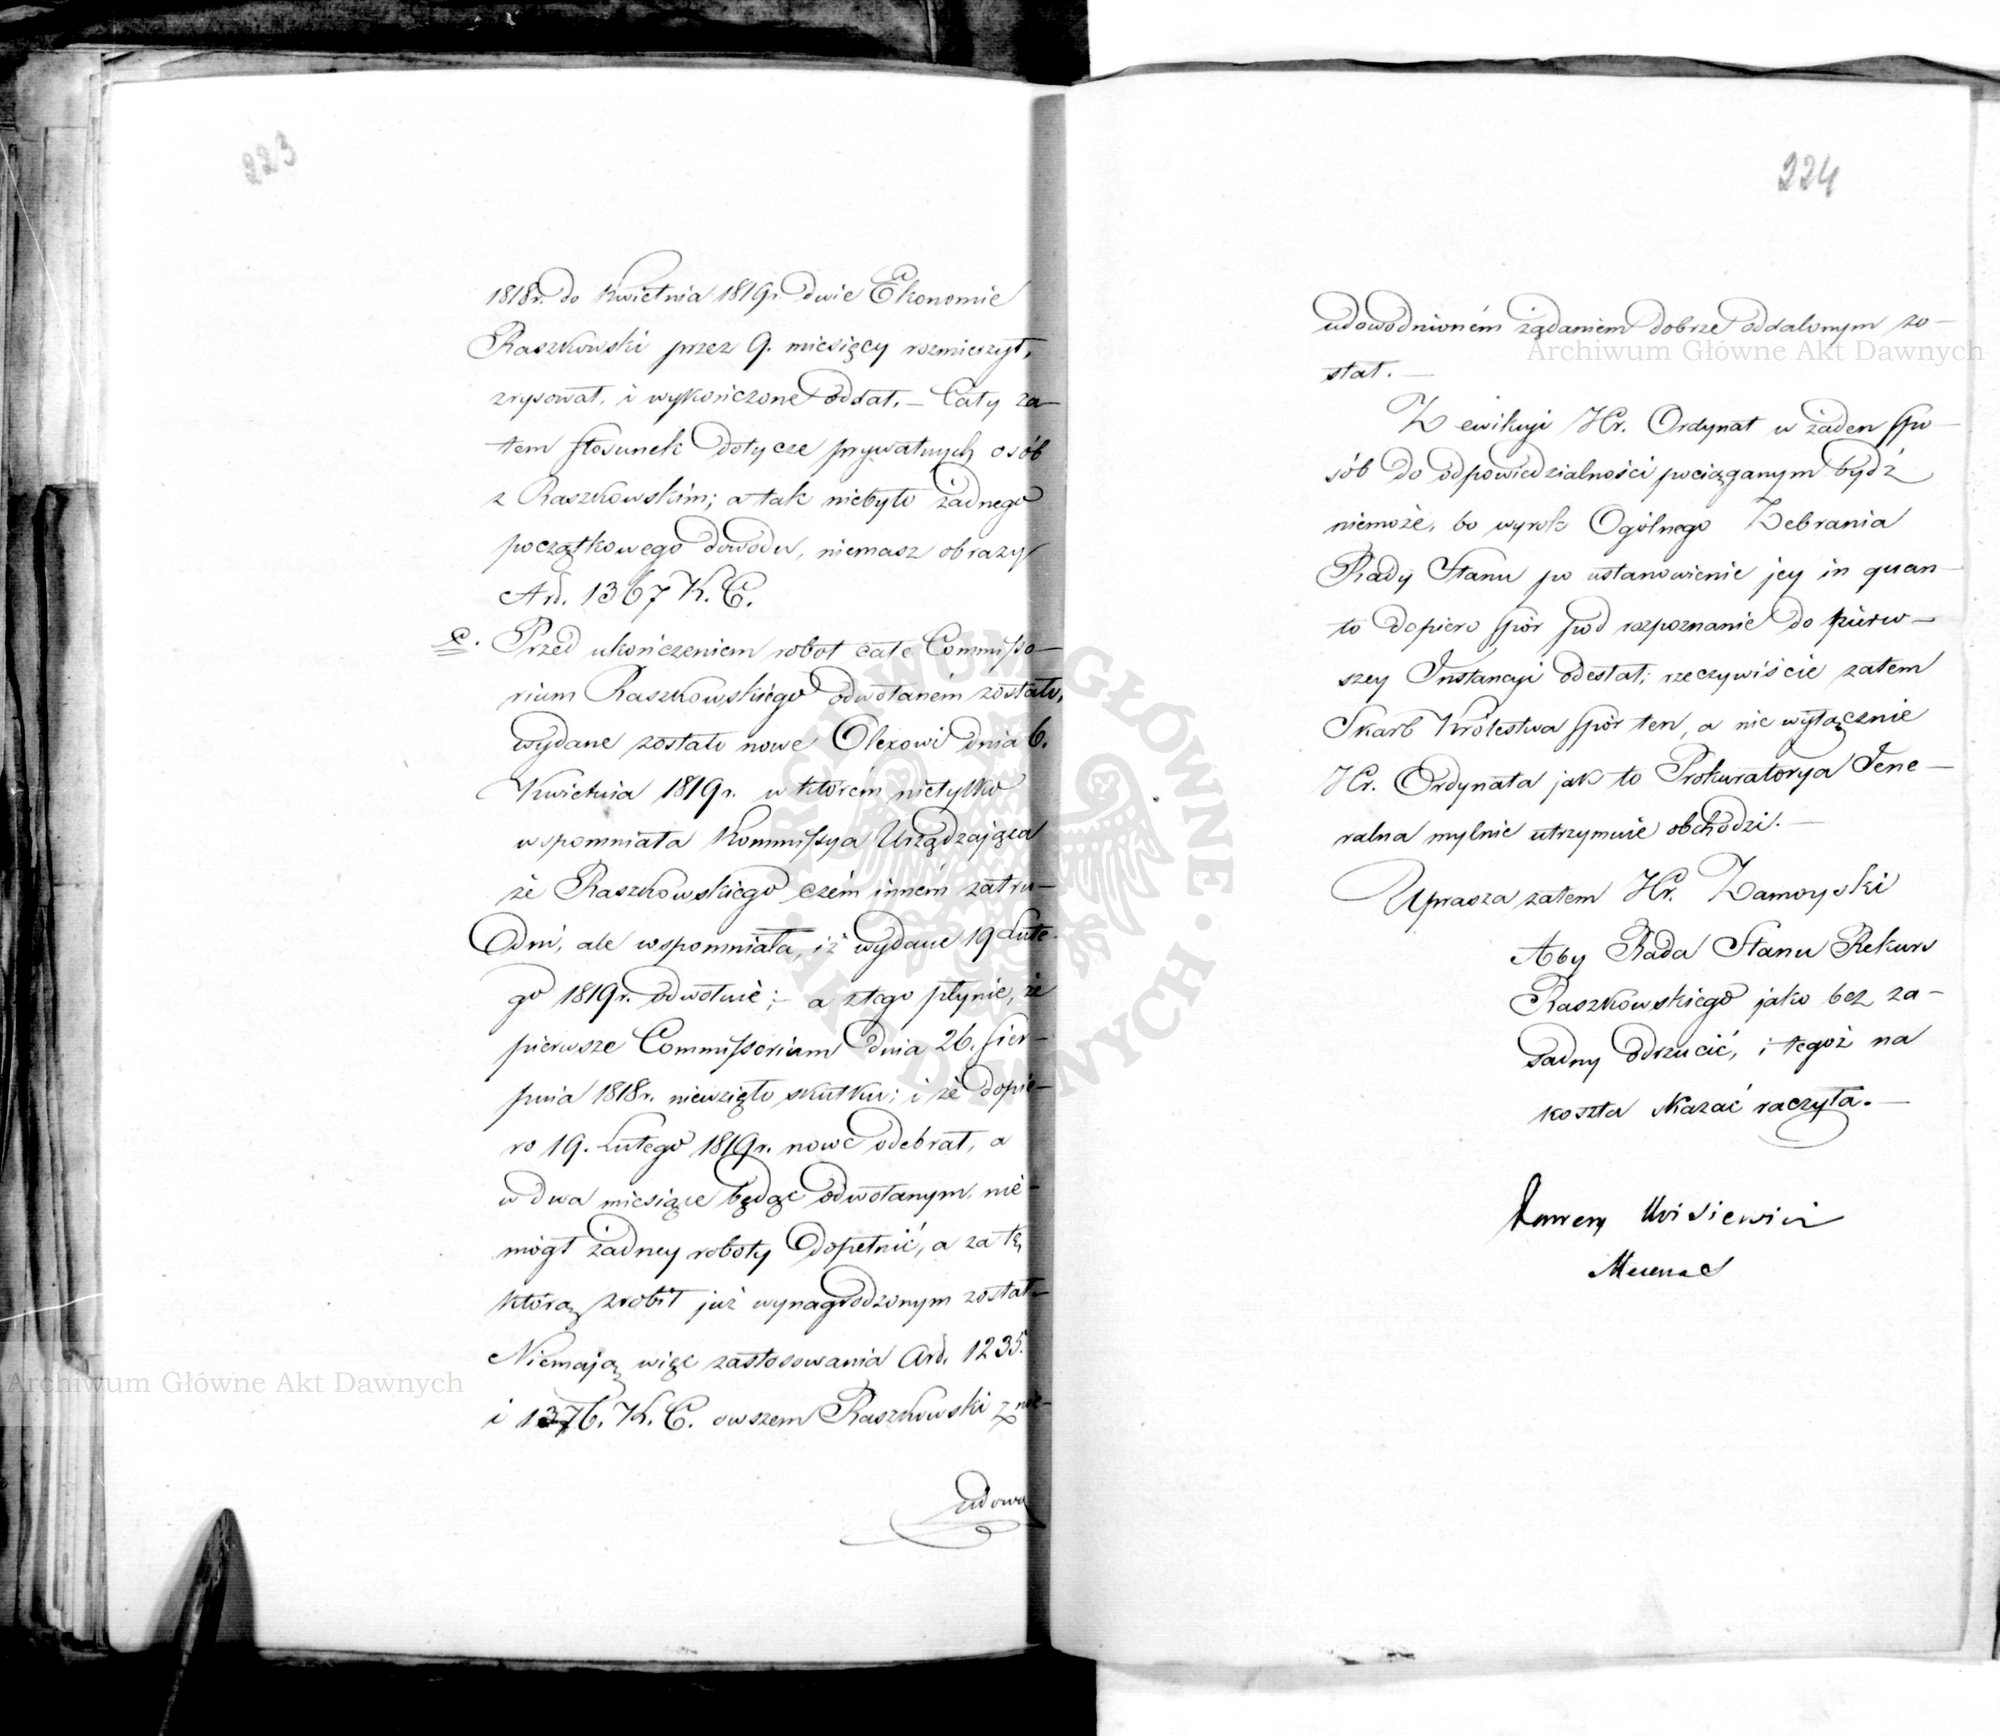 223
1818r. do Kwietnia 1819r. dwie Ekonomie
Raszkowski przez 9. miesięcy rozmierzył,
zrysował, i wykończone oddał. – Cały za-
tem stosunek dotycze prywatnych osób
z Raszkowskim; a tak niebyło żadnego
początkowego dowodu, niemasz obrazy
Art. 1367 K. C.
c. Przed ukończeniem robot całe Commisso-
rium Raszkowskiego odwołaném zostało,
wydane zostało nowe Olexowi dnia 6.
Kwietnia 1819r. w którém nietylko
wspomniała Kommissya Urządzająca
że Raszkowskiego czém inném zatru-
dni, ale wspomniała, iż wydane 19 Lute-
go 1819r. odwołuie; – a ztego płynie, że
pierwsze Commissorium dnia 26. Sier-
pnia 1818r. niewzięło skutku; i że dopie-
ro 19. Lutego 1819r. nowe odebrał, a
w dwa miesiące będąc odwołanym, nie-
mógł żadney roboty dopełnić, a za tę
którą zrobił już wynagrodzonym został.
Niemają więc zastosowania Art. 1235.
i 1376. K. C. owszem Raszkowski z nie-
udowo
224
udowodnioném żądaniem dobrze oddalonym zo-
stał. –
Z ewikcyi Hr. Ordynat w żaden spo-
sób do odpowiedzialności pociąganym bydź
niemoże, bo wyrok Ogólnego Zebrania
Rady Stanu po ustanowienie jey in quan-
to dopiero spór pod rozpoznanie do pierw-
szey Instancyi odesłał; rzeczywiście zatem
Skarb Królestwa spór ten, a nie wyłącznie
Hr. Ordynata jak to Prokuratorya Jene-
ralna mylnie utrzymuie obchodzi. –
Uprasza zatem Hr. Zamoyski
Aby Rada Stanu Rekurs
Raszkowskiego jako bez za-
sadny odrzucić, i tegoż na
koszta skazać raczyła. –
Mecenas
Archiwum Główne Akt Dawnych
Archiwum Główne Akt Dawnych
ARCHIWUM GŁÓWNE · AKT DAWNYCH ·